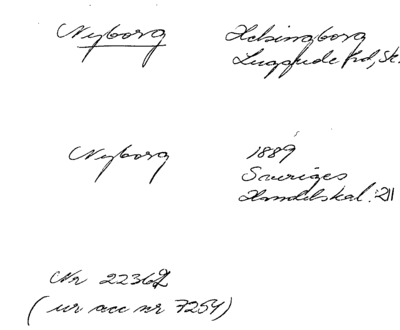 Nyborg
Helsingborg
Luggude hd, Sk.
Nyborg
1889
Sveriges
Handelskal. :211
Nr 22362
(ur acc nr 7254)